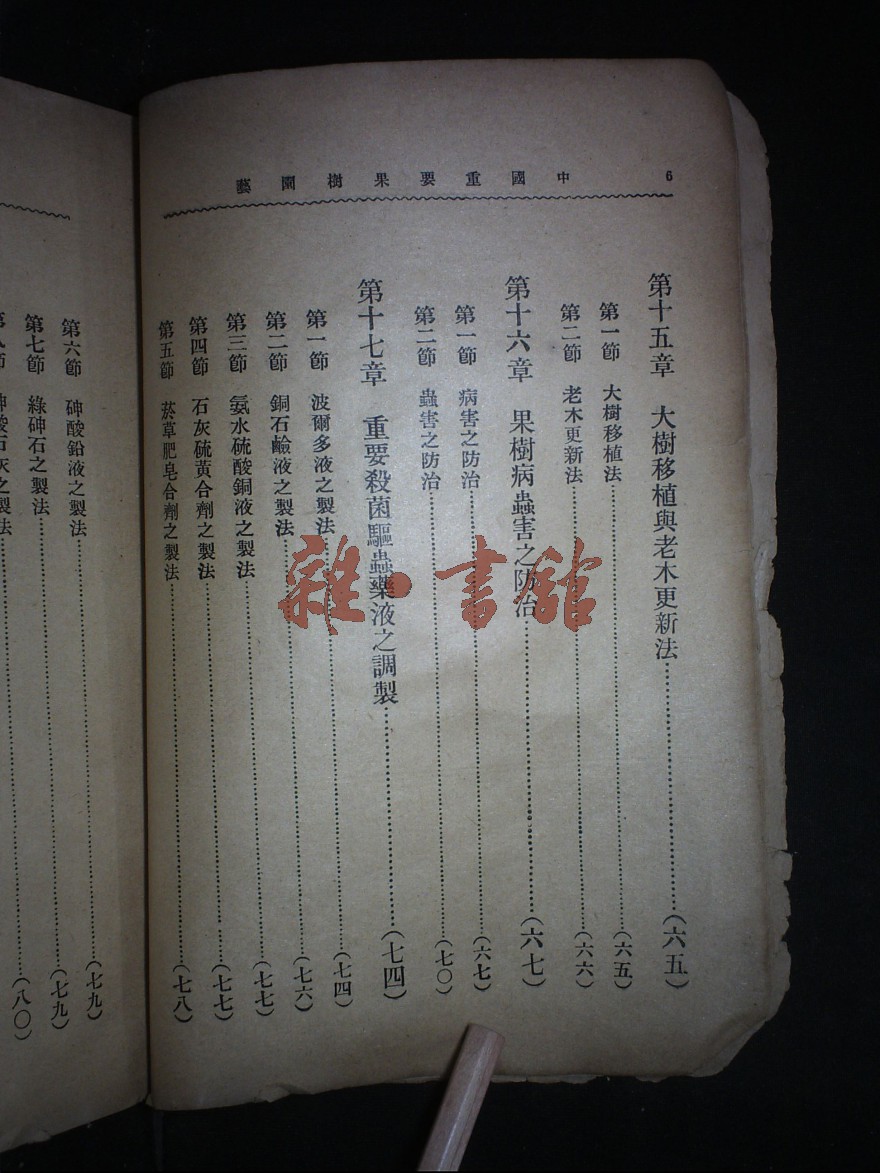 6
中國重要果樹園藝
第十五章 大樹移植與老木更新法……(六五)
第一節 大樹移植法……(六五)
第二節 老木更新法……(六六)
第十六章 果樹病蟲害之防治……(六七)
第一節 病害之防治……(六七)
第二節 蟲害之防治……(七〇)
第十七章 重要殺菌驅蟲藥液之調製……(七四)
第一節 波爾多液之製法……(七四)
第二節 銅石鹼液之製法……(七六)
第三節 氨水硫酸銅液之製法……(七七)
第四節 石灰硫黃合劑之製法……(七七)
第五節 菸草肥皂合劑之製法……(七八)
第六節 砷酸鉛液之製法……(七九)
第七節 綠砷石之製法……(七九)
第八節 砷酸石灰之製法……(八〇)
雜·書館